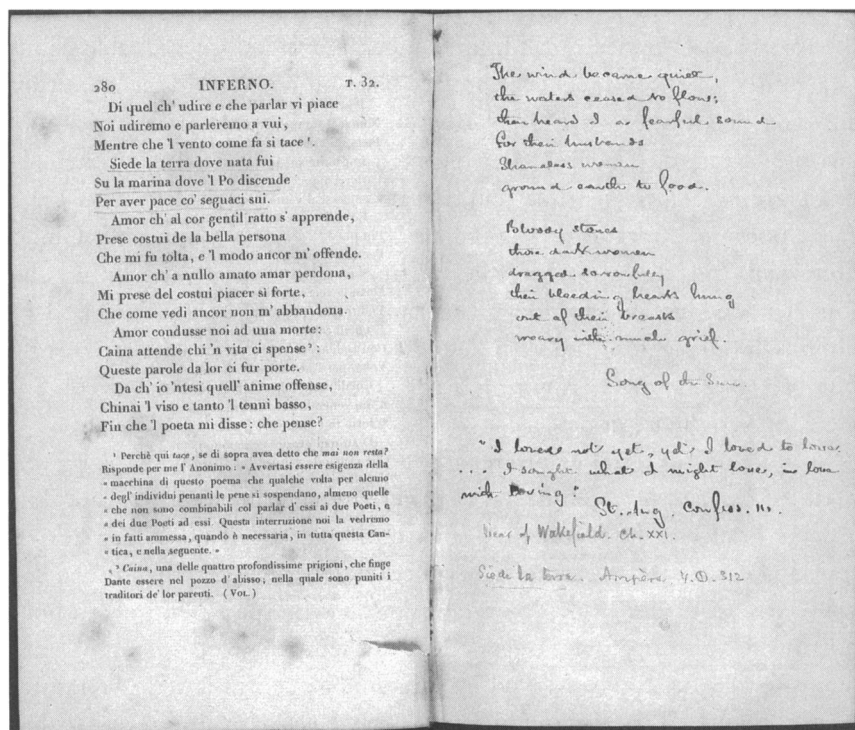 280 INFERNO. T. 32.
Di quel ch' udire e che parlar vi piace
Noi udiremo e parleremo a vui,
Mentre che 'l vento come fa si tace ¹.
Siede la terra dove nata fui
Su la marina dove 'l Po discende
Per aver pace co' seguaci sui.
Amor ch' al cor gentil ratto s' apprende,
Prese costui de la bella persona
Che mi fu tolta, e 'l modo ancor m' offende.
Amor ch' a nullo amato amar perdona,
Mi prese del costui piacer sì forte,
Che come vedi ancor non m' abbandona.
Amor condusse noi ad una morte:
Caina attende chi 'n vita ci spense ² :
Queste parole da lor ci fur porte.
Da ch' io 'ntesi quell' anime offense,
Chinai 'l viso e tanto 'l tenni basso,
Fin che 'l poeta mi disse: che pense?
¹ Perchè qui tace, se di sopra avea detto che mai non resta?
Risponde per me l' Anonimo : « Avvertasi essere esigenza della
« macchina di questo poema che qualche volta per alcuno
« degl' individui penanti le pene si sospendano, almeno quelle
« che non sono combinabili col parlar d' essi ai due Poeti, o
« dei due Poeti ad essi. Questa interruzione noi la vedremo
« in fatti ammessa, quando è necessaria, in tutta questa Can-
« tica, e nella seguente. »
² Caina, una delle quattro profondissime prigioni, che finge
Dante essere nel pozzo d' abisso, nella quale sono puniti i
traditori de' lor parenti. (VOL.)
The wind became quiet,
the waters ceased to flow;
then heard I a fearful sound
For their husbands
Shameless women
ground earth to food.
Bloody stones
those dark women
dragged sorrowfully
their bleeding hearts hung
out of their breasts
weary with much grief.
Song of the Sun.
"I loved not yet, yet I loved to love
... I sought what I might love, in love
with loving."
St. Aug. Confess. III.
Vicar of Wakefield. Ch. XXI.
Siede la terra. Ampère. V. D. 312